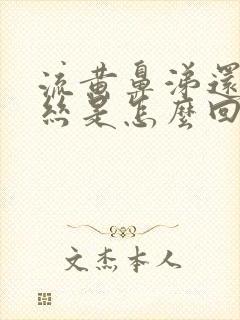 流黄鼻涕還
絲是怎麼回
文杰本人